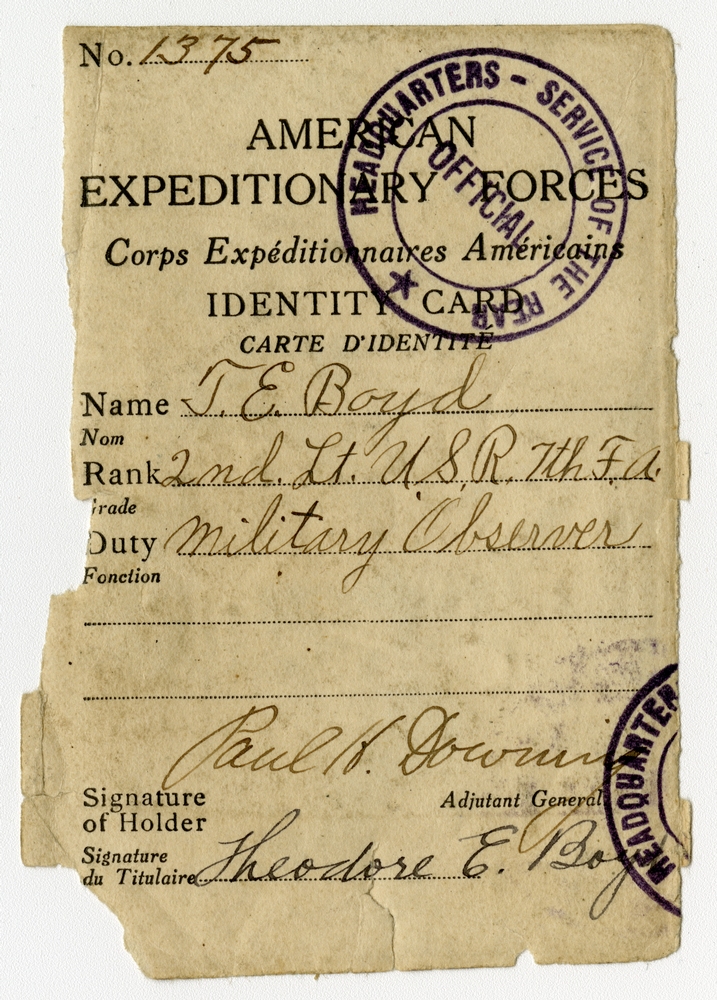 No. 1375
HEADQUARTERS - SERVICE OF THE REAR
OFFICIAL
AMERICAN
EXPEDITIONARY FORCES
Corps Expéditionnaires Américains
IDENTITY CARD
CARTE D'IDENTITÉ
Name T. E. Boyd
Nom
Rank 2nd. Lt. U.S.R. 7th F.A.
rade
Duty Military Observer
Fonction
Paul H. Downing
Adjutant General
HEADQUARTER
Signature
of Holder
Signature
du Titulaire Theodore E. Boy